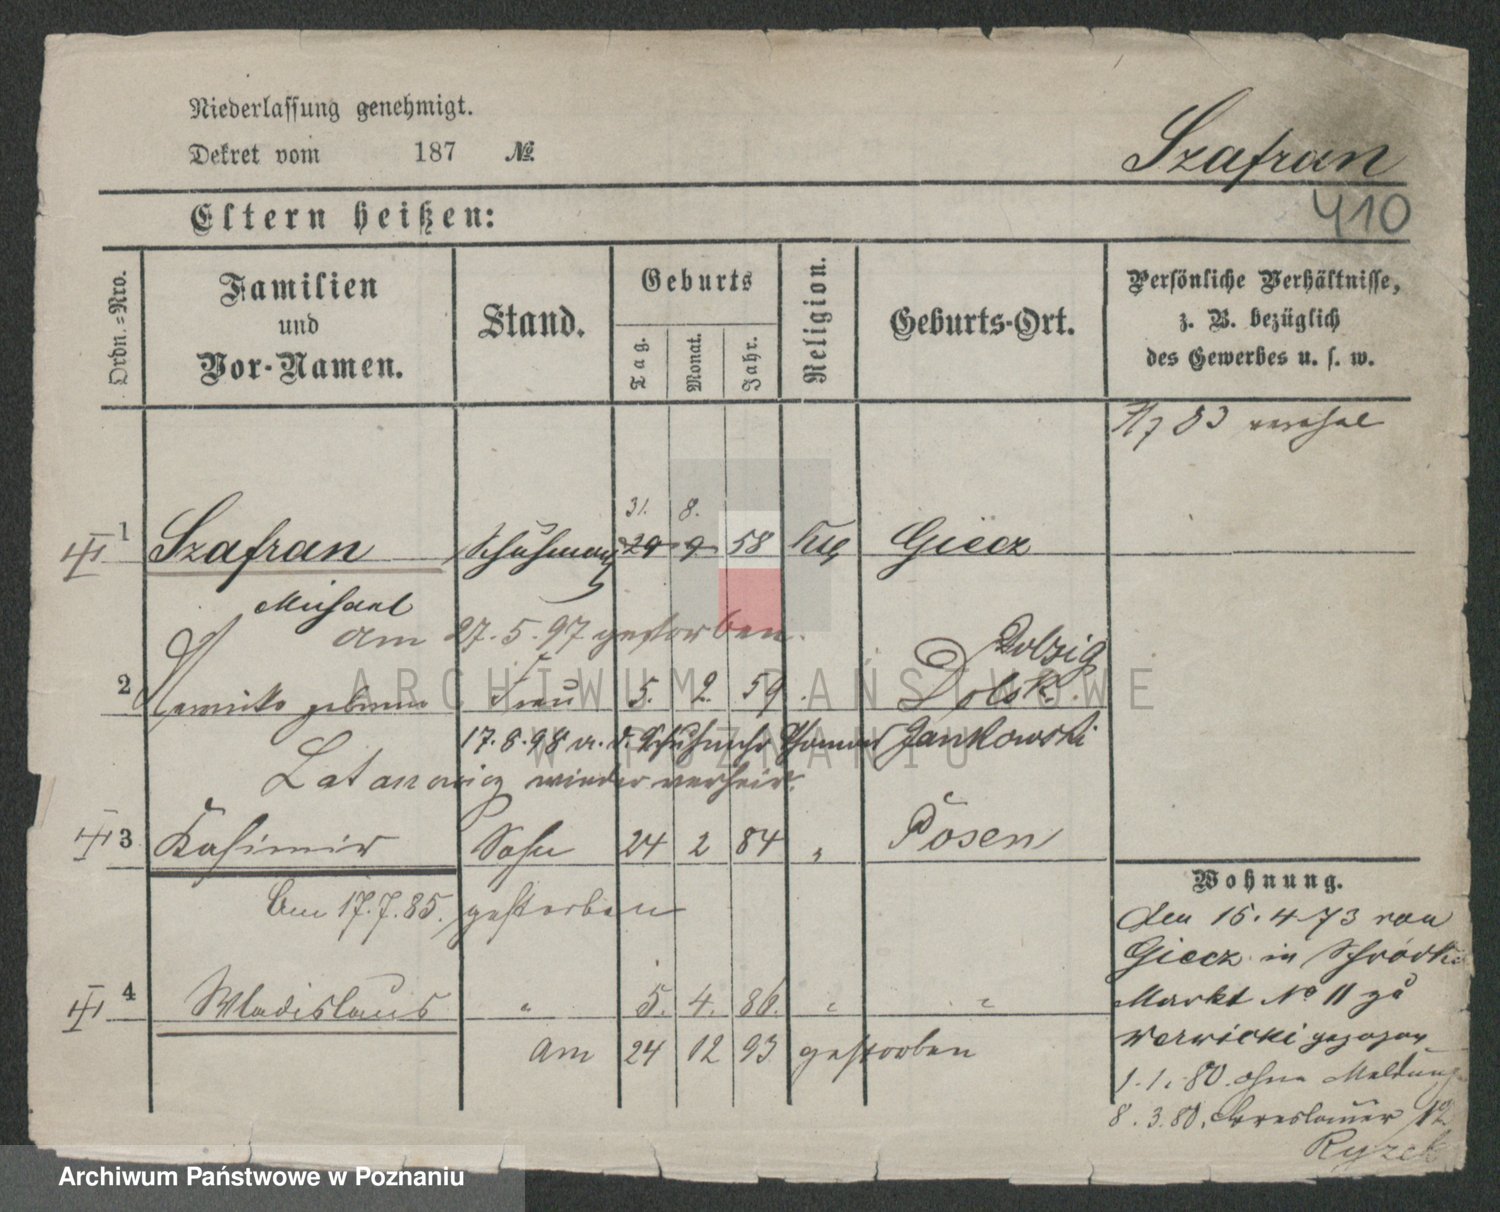 Niederlassung genehmigt.
Dekret vom 187 №
Szafran
410
Eltern heißen:
Ordn.-Nro.
Familien und Vor-Namen.
Stand.
Geburts
Tag.
Monat.
Jahr.
Religion.
Geburts-Ort.
Persönliche Verhältnisse,
z. B. bezüglich
des Gewerbes u. s. w.
83
31. 8.
1 Szafran 29 9 58 kth Giecz
Michael
am 27.5.97 gestorben.
Dolzig
2 geborene Frau 5. 2. 59 Dolsk.
17.8.98 a. d. Thomas Jankowski
Latanowicz wieder verheir.
3 Kasimir Sohn 24 2 84 " Posen
Am 17.7.85. gestorben
4 Wladislaus " 5. 4. 86. " "
am 24 12 93 gestorben
Wohnung.
Den 15.4.73 von
Giecz in Schrodka
Markt No 11 zu
gezogen
1.1.80. ohne Meldung
8.3.80. Breslauer
Ryzek
ARCHIWUM PAŃSTWOWE
W POZNANIU
Archiwum Państwowe w Poznaniu